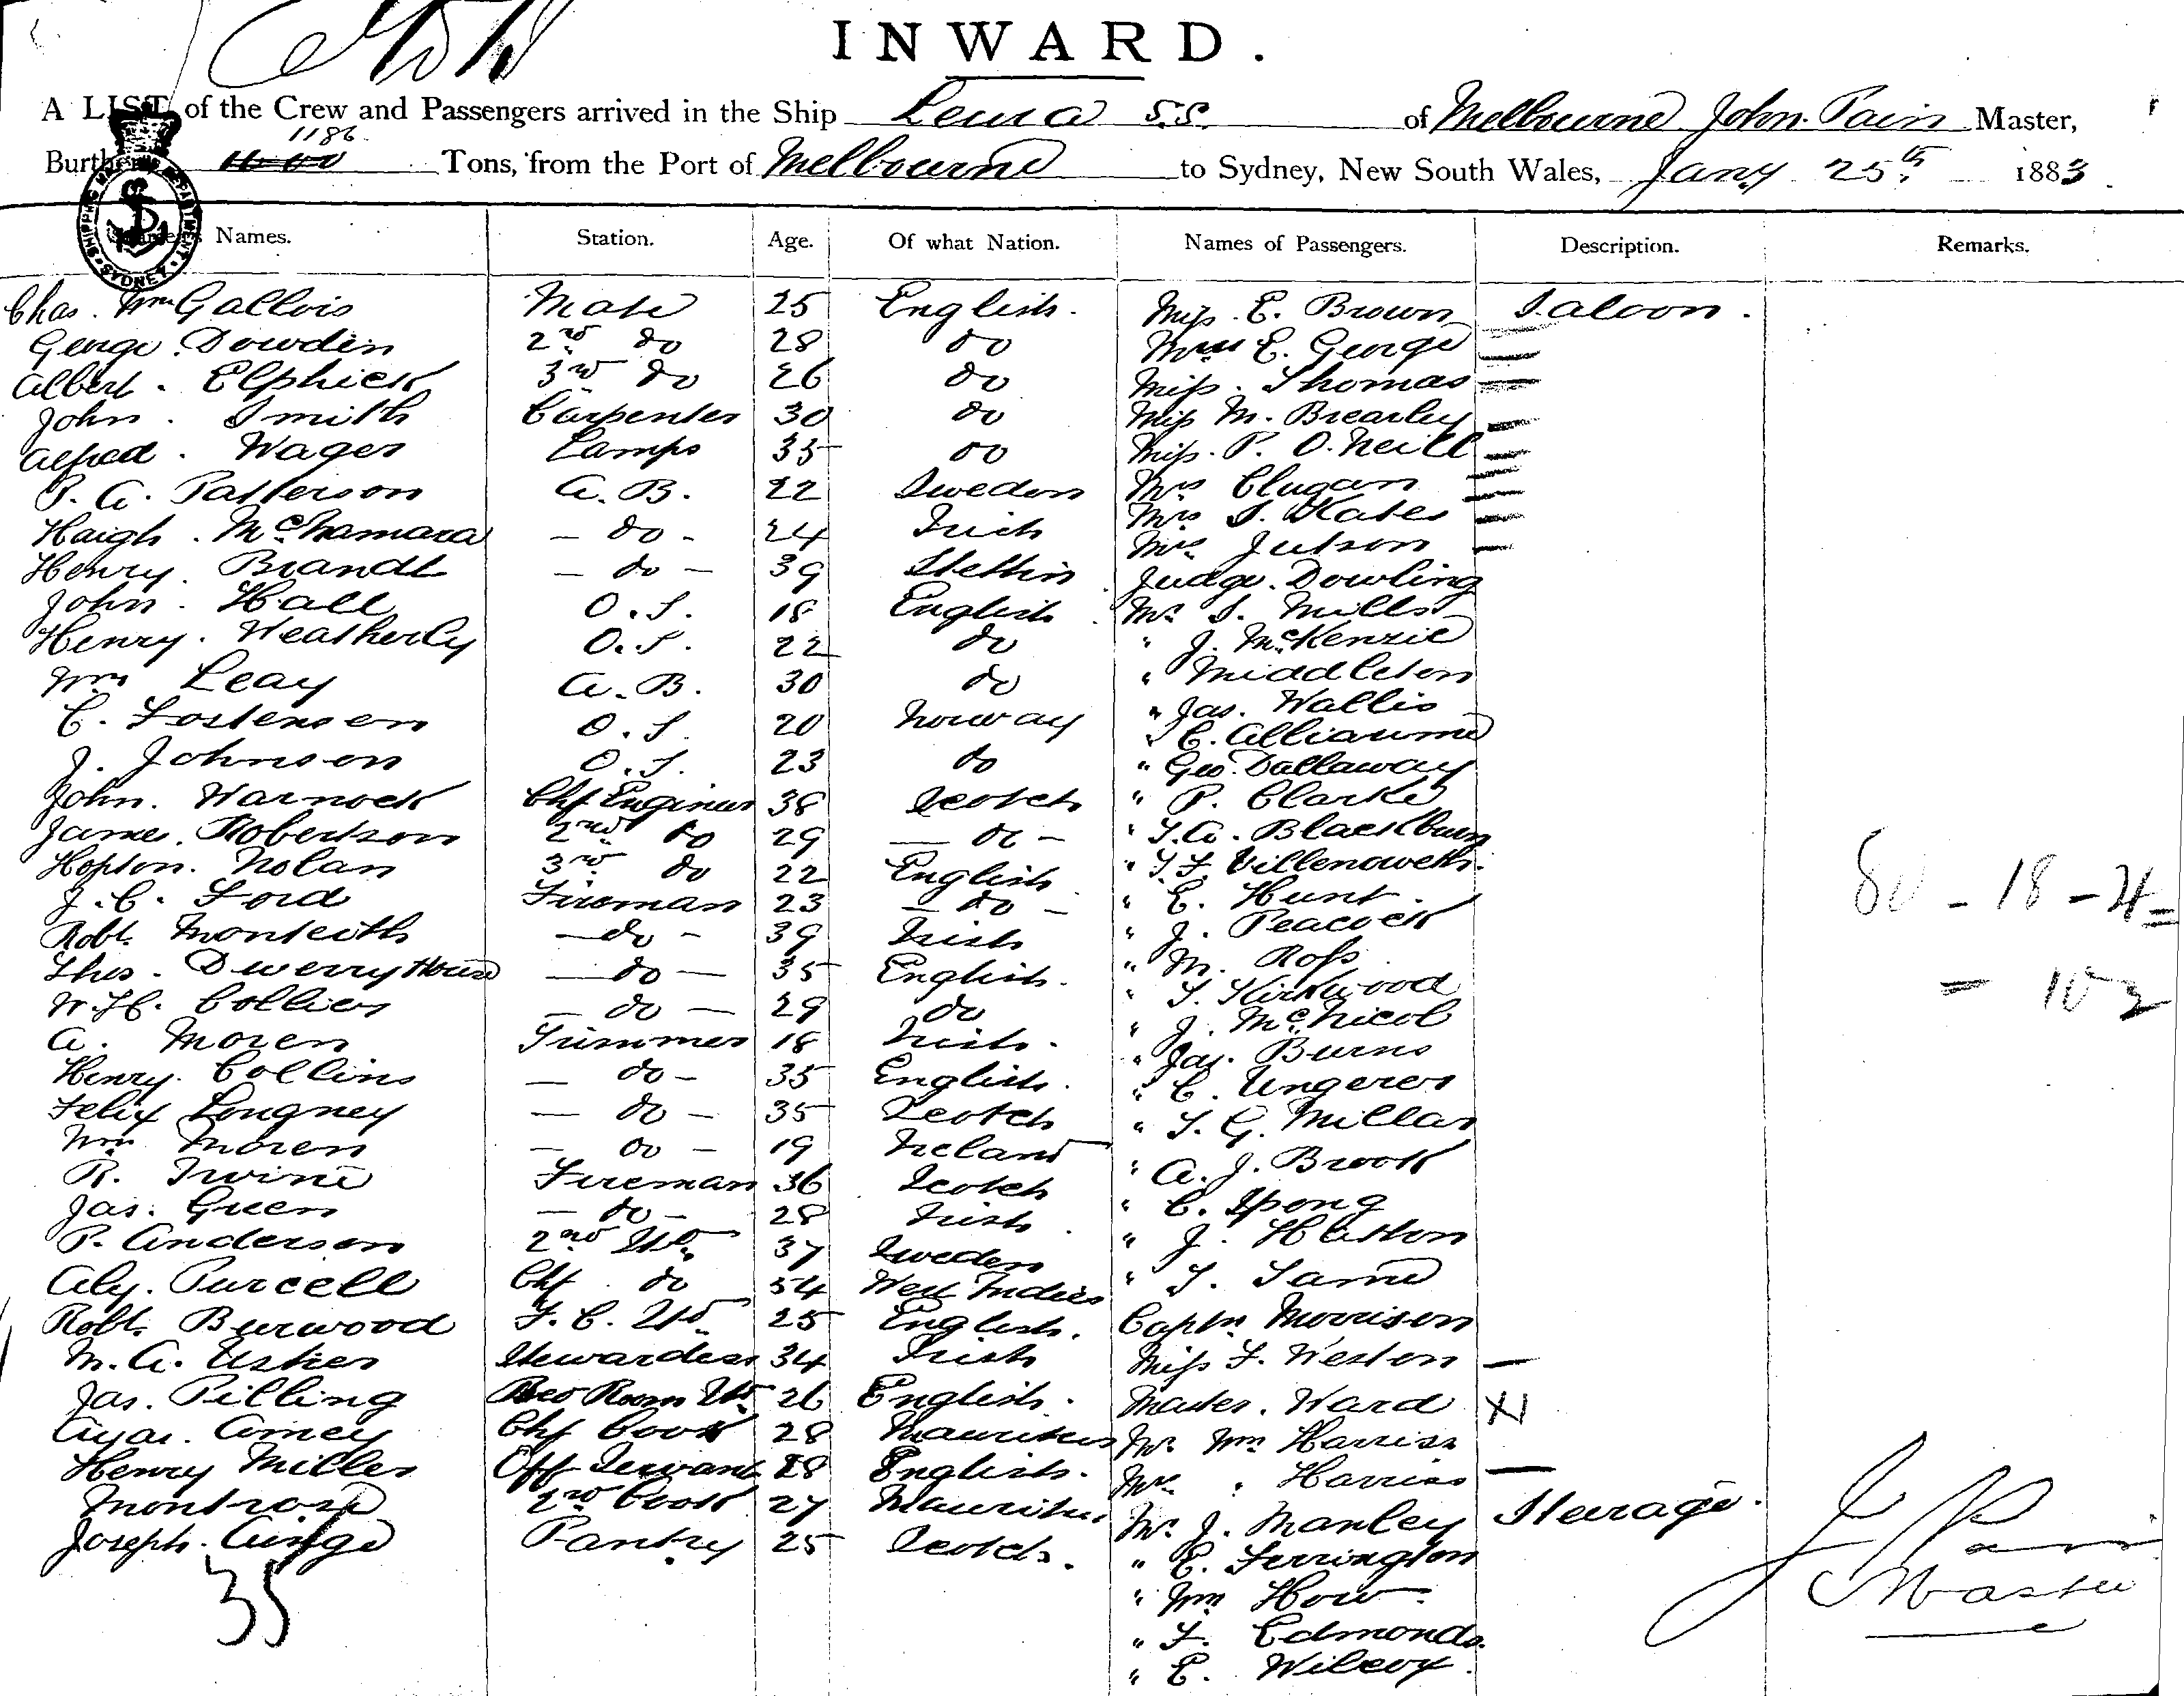 INWARD.
A LIST of the Crew and Passengers arrived in the Ship Leura S.S. of Melbourne John Pain Master,
1186
Burthen 1100 Tons, from the Port of Melbourne to Sydney, New South Wales, Jany 25th 1883.
Names. Station. Age. Of what Nation. Names of Passengers. Description. Remarks.
SHIPPING MASTER'S DEPARTMENT SYDNEY
Chas. Wm Gallois Mate 25 English. Miss E. Brown Saloon.
George. Dowden 2nd do 28 do Mrs E. George
Albert. Elphick 3rd do 26 do Miss. Thomas
John. Smith Carpenter 30 do Miss M. Brearley
Alfred. Wager Lamps 35 do Miss. P. O.Neill
P. A. Patterson A. B. 22 Sweden Mrs Clugan
Haigh. McNamara - do - 24 Irish Mrs S. Kates
Henry. Brandt - do - 39 Stettin Mrs Jutson
John. Hall O.S. 18 English Judge. Dowling
Henry. Weatherly O.S. 22 do Mr S. Mills
Wm Leay A. B. 30 do " J. McKenzie
C. Tostensen O.S. 20 Norway " Middleton
J. Johnson O.S. 23 do " Jas. Wallis
John. Warnock Chf Engineer 38 Scotch " C. Alliaume
James. Robertson 2nd do 29 - do - " Geo. Dallaway
Hopton. Nolan 3rd do 22 English " P. Clarke
J. C. Ford Fireman 23 - do - " T.A. Blackburn
Robt. Monteith - do - 39 Irish " E. Hunt
Thos. Dwerryhouse - do - 35 English. " J. Peacock
W. H. Collier - do - 29 do " M. Ross
A. Moren Trimmer 18 Irish. " T. Kirkwood
Henry. Collins - do - 35 English. " J. McNicol
Felix Longney - do - 35 Scotch " Jas. Burns
Wm Moren - do - 19 Ireland " C. Ungerer
R. Irvine Fireman 36 Scotch " T. G. Millar
Jas. Green - do - 28 Irish " A. J. Brook
P. Anderson 2nd Std. 37 Sweden " C. Spong
Aly. Purcell Chf. do 54 West Indies " J. Haston
Robt. Burwood F. C. Std. 25 English. Captn Morrison
M. A. Usher Stewardess 34 Irish Miss F. Weston
Jas. Pilling Room Std. 26 English. Master. Ward
Chf Cook 28 Mauritius Mr Wm Harriss
Henry Miller Off Servant 18 English. Mrs " Harriss
Montrose 2nd Cook 27 Mauritius Mr J. Manley Steerage.
Joseph. Pantry 25 Scotch. " E. Ferrington
35 " Wm How
" F. Edmonds.
" E. Wilcox.
80 - 18 - 4 =
= 102
J Pain
Master